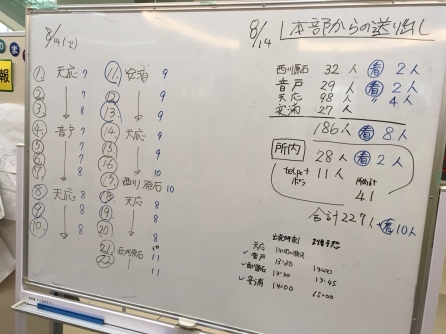 8/14(土)
① 天応 7
② 7
③ 7
④ 音戸 7
⑤ 7
⑥ 7
⑦ 8
⑧ 天応 8
⑨ 8
⑩ 8
⑪ 安浦 9
⑫ 9
⑬ 9
⑭ 天応 9
⑮ 9
⑯ 10
⑰ 西川原石 10
⑱ 天応 8
⑲ 8
⑳ 8
㉑ 西川原石
㉒ 11
8/14 本部からの送り出し
西川原石 32人 看 2人
音戸 29人 看 2人
天応 98人 〃 4人
安浦 27人
186人 看 8人
所内 28人 看 2人
11人
41
合計227人 看10人
天応
音戸 13:30
西川原石 13:30 14:00
安浦 14:00 15:00
報